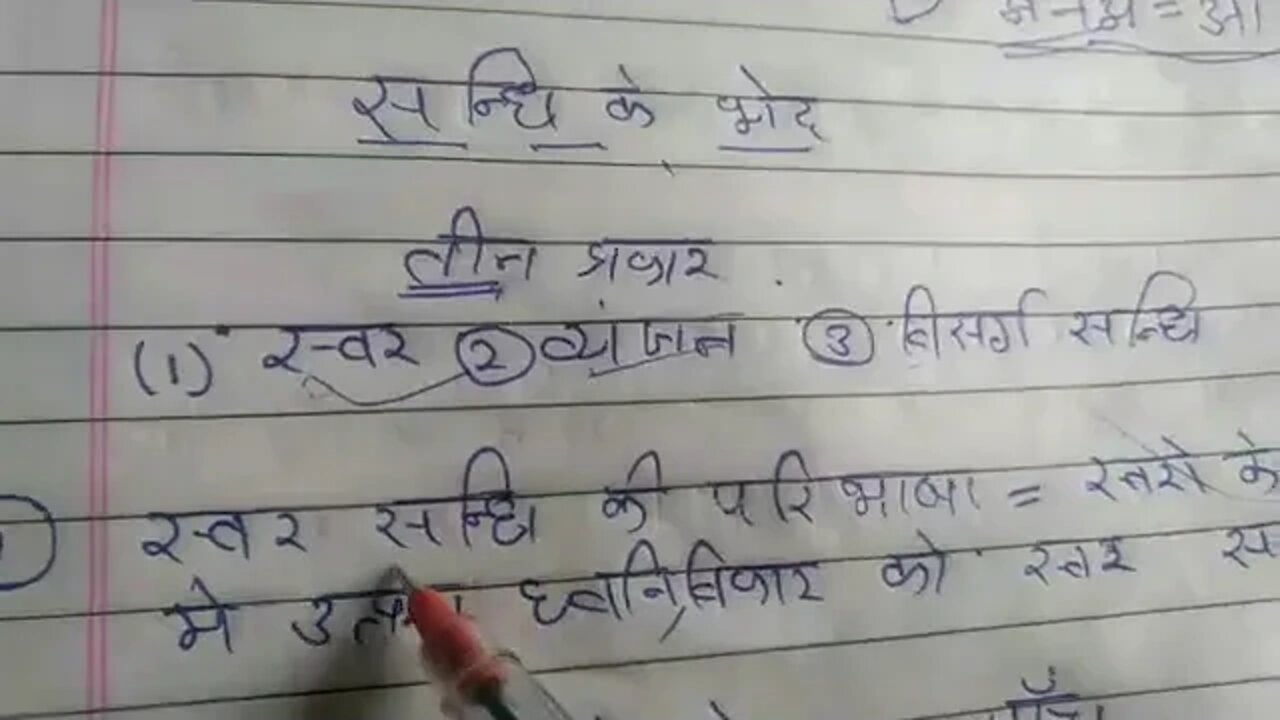 सन्धि के भेद
तीन प्रकार
(1) स्वर ② व्यंजन ③ विसर्ग सन्धि
स्वर सन्धि की परिभाषा = स्वरो के
मे ध्वनिविकार को स्वर